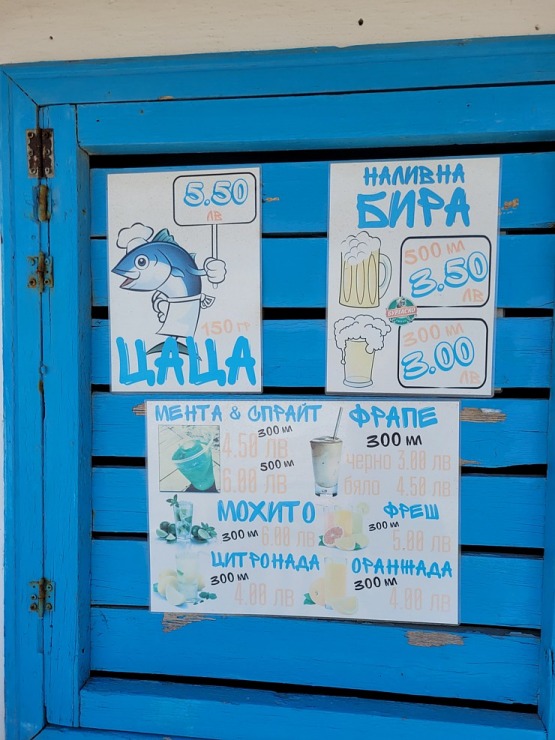 5.50
ЛВ
150 ГГ
ЦАЦА
НАЛИВНА
БИРА
500 МЛ
3.50
ЛВ
300 МЛ
3.00
ЛВ
МЕНТА & СПРАЙТ
300 МЛ
4.50 ЛВ
500 МЛ
6.00 ЛВ
ФРАПЕ
300 МЛ
черно 3.00 ЛВ
бяло 4.50 ЛВ
МОХИТО
300 МЛ 6.00 ЛВ
ФРЕШ
300 МЛ
5.00 ЛВ
ЦИТРОНАДА
300 МЛ
4.00 ЛВ
ОРАНЖАДА
300 МЛ
4.00 ЛВ